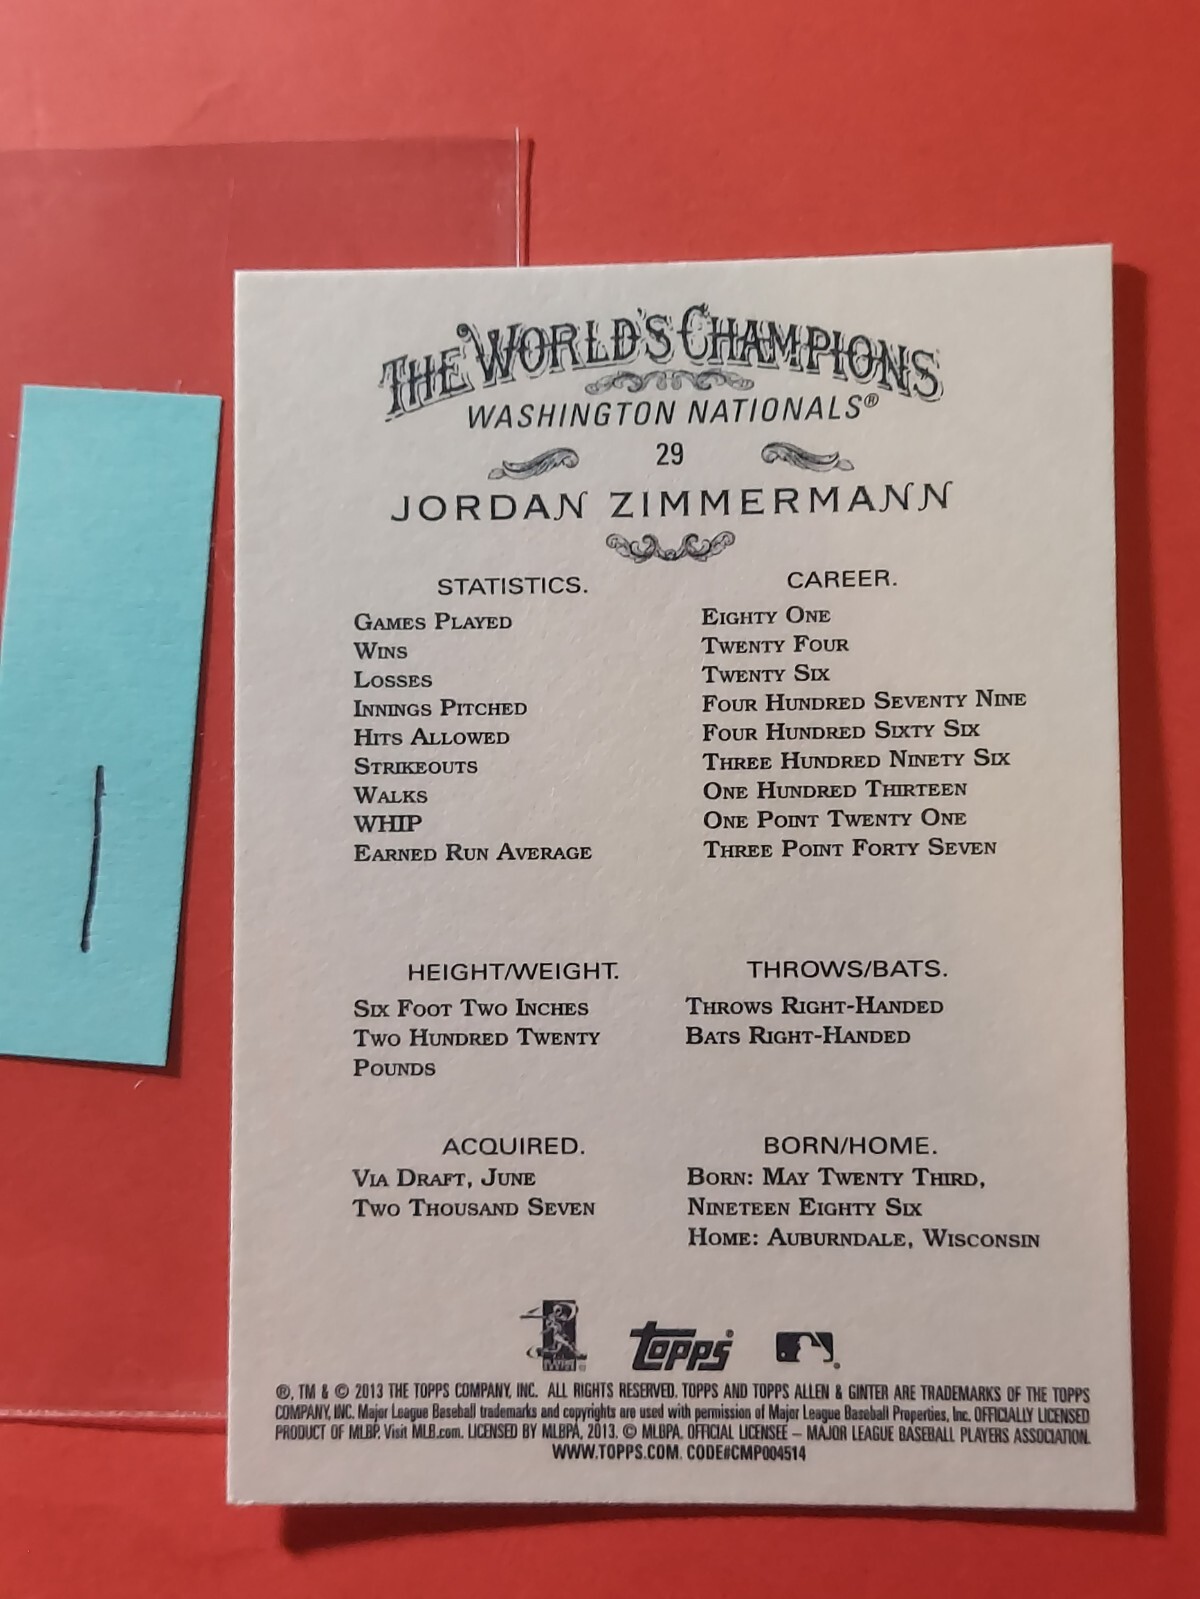 THE WORLD'S CHAMPIONS
WASHINGTON NATIONALS®
29
JORDAN ZIMMERMANN
STATISTICS. CAREER.
GAMES PLAYED EIGHTY ONE
WINS TWENTY FOUR
LOSSES TWENTY SIX
INNINGS PITCHED FOUR HUNDRED SEVENTY NINE
HITS ALLOWED FOUR HUNDRED SIXTY SIX
STRIKEOUTS THREE HUNDRED NINETY SIX
WALKS ONE HUNDRED THIRTEEN
WHIP ONE POINT TWENTY ONE
EARNED RUN AVERAGE THREE POINT FORTY SEVEN
HEIGHT/WEIGHT.
SIX FOOT TWO INCHES
TWO HUNDRED TWENTY
POUNDS
THROWS/BATS.
THROWS RIGHT-HANDED
BATS RIGHT-HANDED
ACQUIRED.
VIA DRAFT, JUNE
TWO THOUSAND SEVEN
BORN/HOME.
BORN: MAY TWENTY THIRD,
NINETEEN EIGHTY SIX
HOME: AUBURNDALE, WISCONSIN
Topps
®, TM & © 2013 THE TOPPS COMPANY, INC. ALL RIGHTS RESERVED. TOPPS AND TOPPS ALLEN & GINTER ARE TRADEMARKS OF THE TOPPS
COMPANY, INC. Major League Baseball trademarks and copyrights are used with permission of Major League Baseball Properties, Inc. OFFICIALLY LICENSED
PRODUCT OF MLBP. Visit MLB.com. LICENSED BY MLBPA, 2013. © MLBPA. OFFICIAL LICENSEE – MAJOR LEAGUE BASEBALL PLAYERS ASSOCIATION.
WWW.TOPPS.COM. CODE#CMP004514